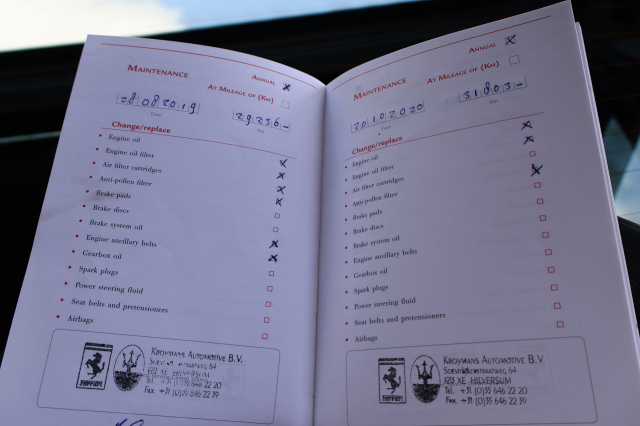 MAINTENANCE
ANNUAL
AT MILEAGE OF (KM)
28 08 2019
29236-
Date
Km
Change/replace
Engine oil
Engine oil filter
Air filter cartridges
Anti-pollen filter
Brake pads
Brake discs
Brake system oil
Engine ancillary belts
Gearbox oil
Spark plugs
Power steering fluid
Seat belts and pretensioners
Airbags
Ferrari
KROYMANS AUTOMOTIVE B.V.
64
XE HILVERSUM
Tel. +31 (0)35 646 22 20
Fax. +31 (0)35 646 22 39
MAINTENANCE
ANNUAL
AT MILEAGE OF (KM)
20 10 2020
31803-
Date
Km
Change/replace
Engine oil
Engine oil filter
Air filter cartridges
Anti-pollen filter
Brake pads
Brake discs
Brake system oil
Engine ancillary belts
Gearbox oil
Spark plugs
Power steering fluid
Seat belts and pretensioners
Airbags
Ferrari
KROYMANS AUTOMOTIVE B.V.
64
XE HILVERSUM
Tel. +31 (0)35 646 22 20
Fax. +31 (0)35 646 22 39